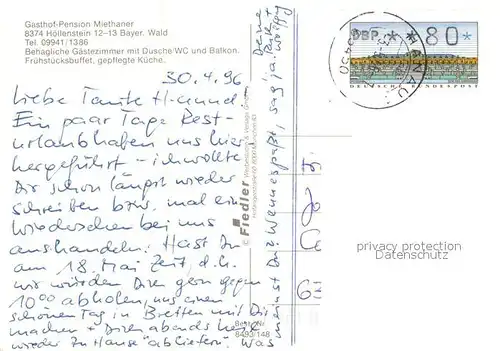 Gasthof-Pension Miethaner
8374 Höllenstein 12-13 Bayer. Wald
Tel. 09941/1386
Behagliche Gästezimmer mit Dusche/WC und Balkon.
Frühstücksbuffet, gepflegte Küche.
30.4.96
Liebe Tante Hanna!
Ein paar Tage Rest-
urlaub haben uns hier
hergeführt - ich wollte
Dir schon längst wieder
schreiben bzw. mal ein
Wiedersehen bei uns
aushandeln. Hast Du
am 18. Mai Zeit, d.h.
wir würden Dich gern gegen
10⁰⁰ abholen, uns einen
schönen Tag in Bretten mit Dir
machen + Dich abends
wieder zu Hause "abliefern". Was
meinst Du? Wenn es paßt, sag ja.
Deine
Fiedler
Best.-Nr.
8490/148
DBP
*80*
HANAU
DEUTSCHE BUNDESPOST
privacy protection
Datenschutz